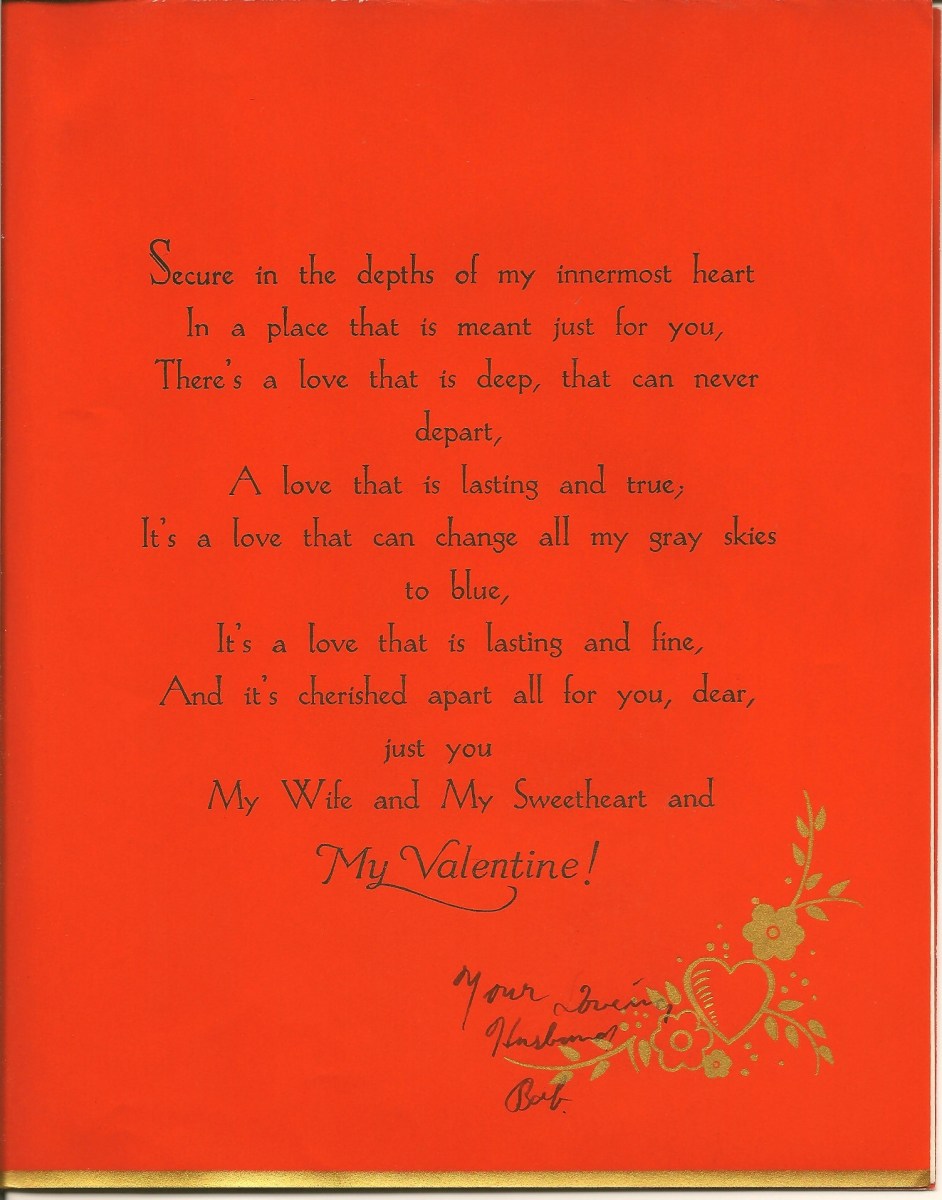 Secure in the depths of my innermost heart
In a place that is meant just for you,
There's a love that is deep, that can never
depart,
A love that is lasting and true;
It's a love that can change all my gray skies
to blue,
It's a love that is lasting and fine,
And it's cherished apart all for you, dear,
just you
My Wife and My Sweetheart and
My Valentine!
Your Loving
Husband
Bob.